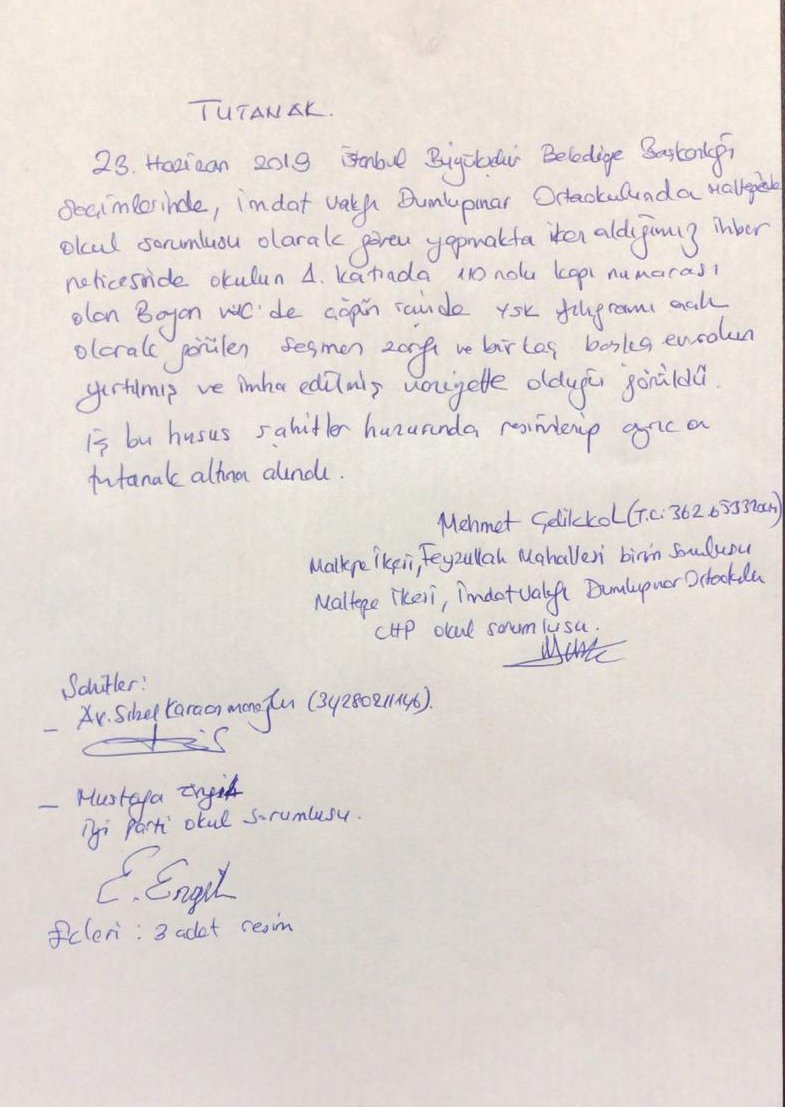 TUTANAK.
23. Haziran 2019 İstanbul Büyükşehir Belediye Başkanlığı
Seçimlerinde, İmdat Vakfı Dumlupınar Ortaokulunda Maltepede
okul sorumlusu olarak görev yapmakta iken aldığımız ihbar
neticesinde okulun 4. katında 110 nolu kapı numarası
olan Bayan WC'de çöpün içinde YSK filigramı açık
olarak görülen seçmen zarfı ve birkaç başka evrakın
yırtılmış ve imha edilmiş vaziyette olduğu görüldü.
iş bu husus şahitler huzurunda resimlenip ayrıca
tutanak altına alındı.
Mehmet Çelikkol (T.C: 362
Maltepe İlçesi, Feyzullah Mahallesi birim sorumlusu
Maltepe İlçesi, İmdat Vakfı Dumlupınar Ortaokulu
CHP okul sorumlusu.
Şahitler:
- Av. Sibel Karaosmanoğlu (34280211146).
- Mustafa Engin
iyi Parti okul sorumlusu.
E. Engin
Ekleri : 3 adet resim